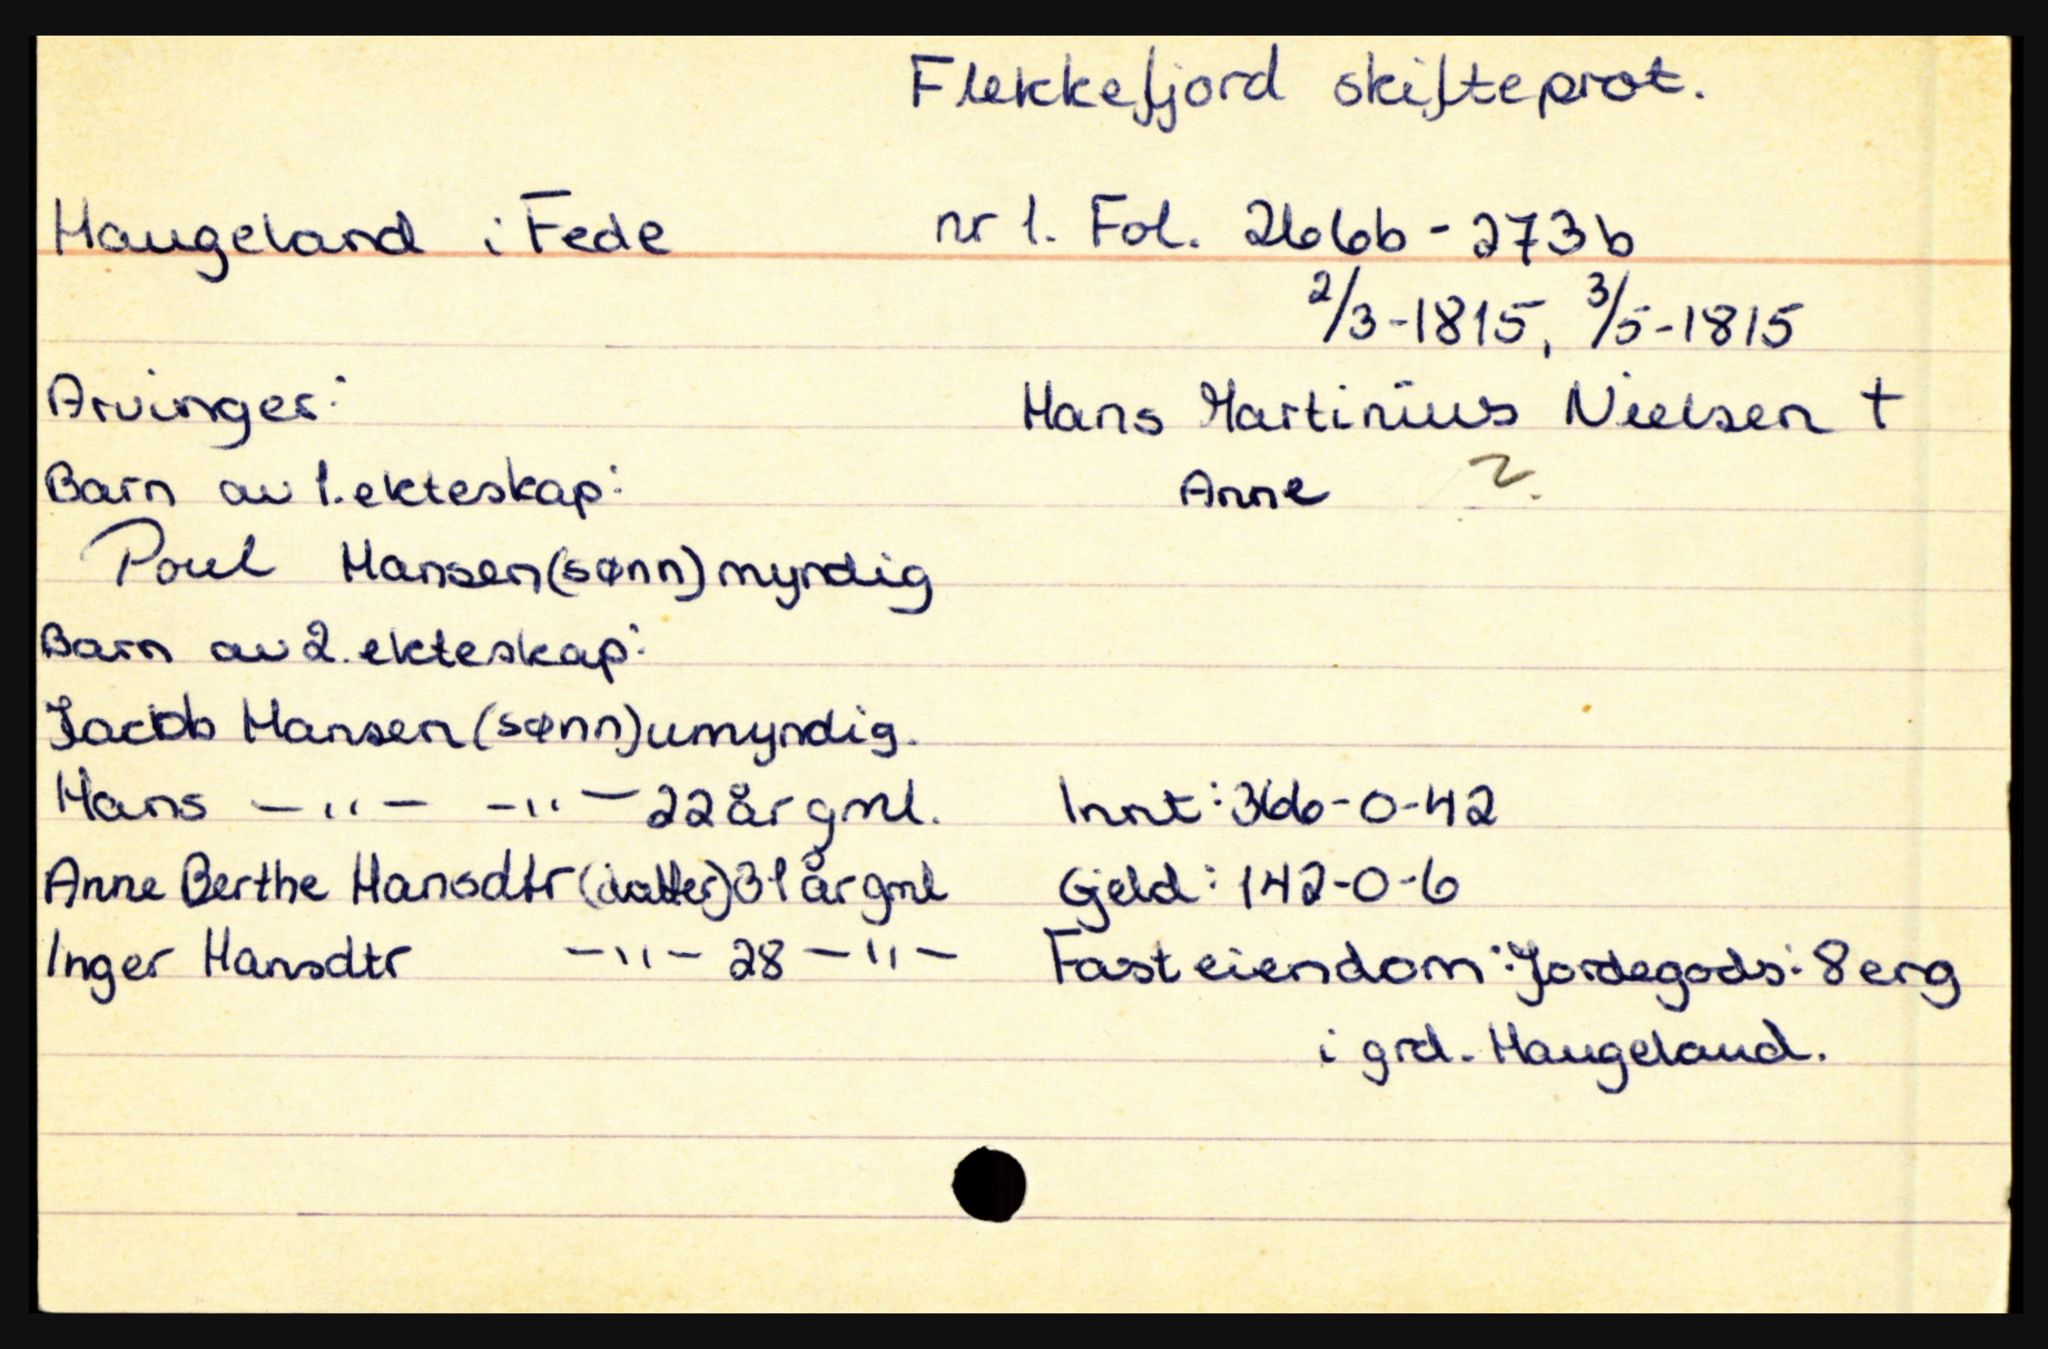 Flekkefjord skifteprot.
Haugeland i Fede nr 1. Fol. 266b - 273b
2/3-1815, 3/5-1815
Arvinger: Hans Martinius Nielsen †
Barn av 1. ekteskap: Anne ?
Poul Hansen (sønn) myndig
Barn av 2. ekteskap:
Jacob Hansen (sønn) umyndig.
Hans —"— —"— 22 år gml. Innt: 366-0-42
Anne Berthe Hansdtr (datter) 31 år gml Gjeld: 142-0-6
Inger Hansdtr —"— 28 —"— Fast eiendom: Jordegods: 8 erg
i grd. Haugeland.